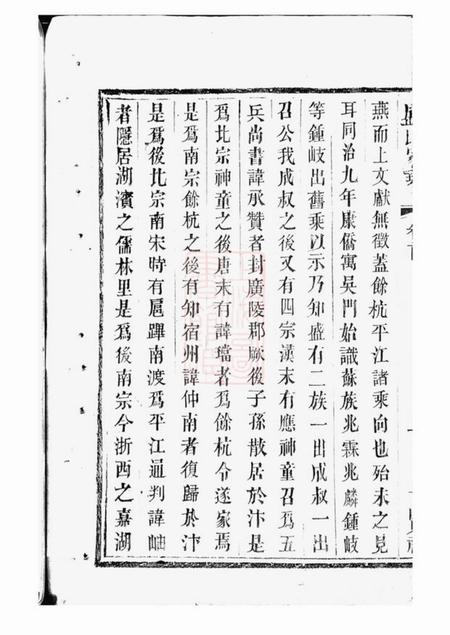 燕而上文獻無徵蓋餘杭平江諸乘向也殆未之見
耳同治九年康僑寓吳門始識蘇族兆霖兆麟鍾岐
等鍾岐出舊乘以示乃知盛有二族一出成叔一出
召公我成叔之後又有四宗漢末有應神童召爲五
兵尚書諱承贊者封廣陵郡厥後子孫散居於汴是
爲北宗神童之後唐末有諱璫者爲餘杭令遂家焉
是爲南宗餘杭之後有知宿州諱仲南者復歸於汴
是爲後北宗南宋時有扈蹕南渡爲平江通判諱岫
者隱居湖濱之儒林里是爲後南宗今浙西之嘉湖